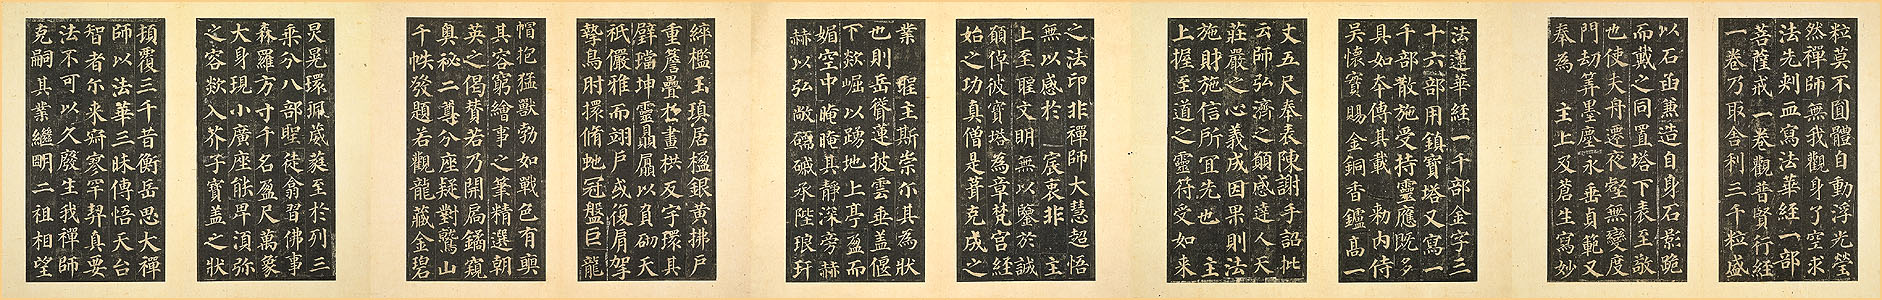 粒莫不圓體自動浮光瑩
然禪師無我觀身了空求
法先刾血寫法華經一部
菩薩戒一卷觀普賢行經
一卷乃取舍利三千粒盛
以石函兼造自身石影跪
而戴之同置塔下表至敬
也使夫舟遷夜壑無變度
門劫筭墨塵永垂貞範又
奉為 主上及蒼生寫妙
法蓮華經一千部金字三
十六部用鎮寶塔又寫一
千部散施受持靈應既多
具如本傳其載 敕內侍
吳懷實賜金銅香鑪高一
丈五尺奉表陳謝手詔批
云師弘濟之願感達人天
莊嚴之心義成因果則法
施財施信所宜先也 主
上握至道之靈符受如来
之法印非禪師大慧超悟
無以感於 宸衷非 主
上至聖文明無以鑒於誠
願倬彼寶塔為章梵宮經
始之功真僧是葺克成之
業 聖主斯崇尔其為狀
也則岳聳蓮披雲垂盖偃
下欻崛以踊地上亭盈而
媚空中晻晻其靜深旁赫
赫以弘敞礝磩承陛琅玕
綷檻玉瑱居楹銀黃拂戶
重簷疊於畫栱反宇環其
璧璫坤靈贔屭以負砌天
祇儼雅而翊戶或復肩拏
摯鳥肘擐脩虵冠盤巨龍
帽抱猛獸勃如戰色有奭
其容窮繪事之筆精選朝
英之偈贊若乃開扃鐍窺
奧秘二尊分座疑對鷲山
千帙發題若觀龍藏金碧
炅晃環珮葳蕤至於列三
乘分八部聖徒翕習佛事
森羅方寸千名盈尺萬象
大身現小廣座能卑須弥
之容欻入芥子寶盖之狀
頓覆三千昔衡岳思大禪
師以法華三昧傳悟天台
智者尔来寂寥罕契真要
法不可以久廢生我禪師
克嗣其業繼明二祖相望